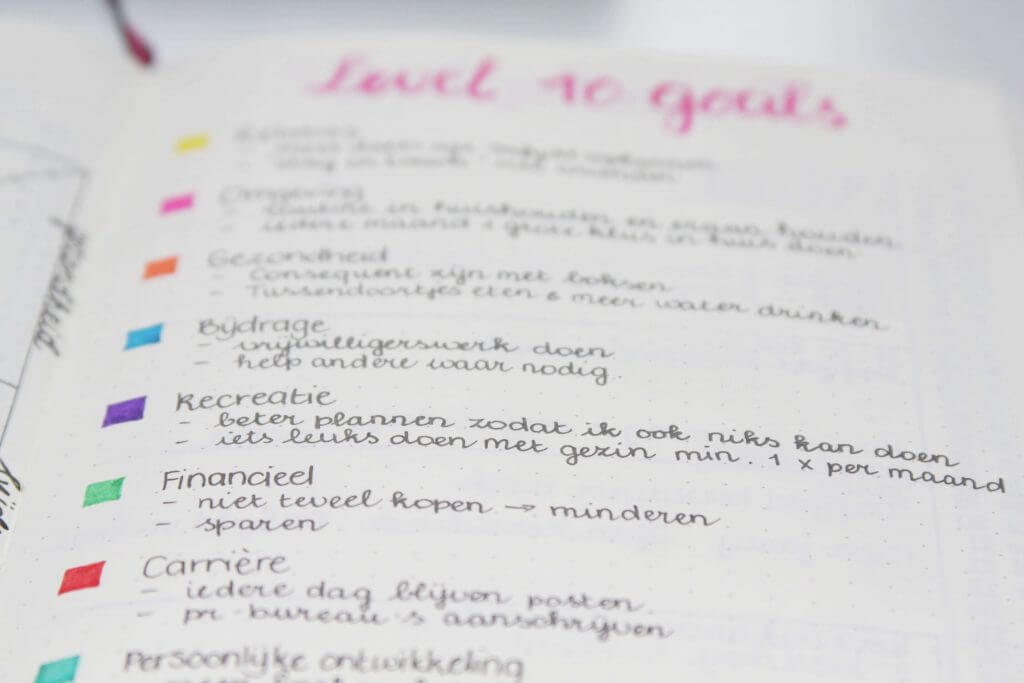 Level 10 goals
Omgeving
- routine in huishouden en eraan houden
- iedere maand 1 grote klus in huis doen
Gezondheid
- Consequent zijn met boksen
- Tussendoortjes eten & meer water drinken
Bijdrage
- vrijwilligerswerk doen
- help andere waar nodig.
Recreatie
- beter plannen zodat ik ook niks kan doen
- iets leuks doen met gezin min. 1 x per maand
Financieel
- niet teveel kopen → minderen
- sparen
Carrière
- iedere dag blijven posten.
- pr-bureau's aanschrijven
Persoonlijke ontwikkeling